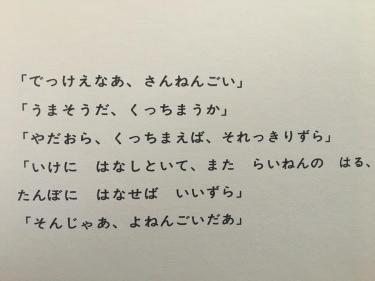 「でっけえなあ、さんねんごい」
「うまそうだ、くっちまうか」
「やだおら、くっちまえば、それっきりずら」
「いけに　はなしといて、また　らいねんの　はる、
たんぼに　はなせば　いいずら」
「そんじゃあ、よねんごいだあ」